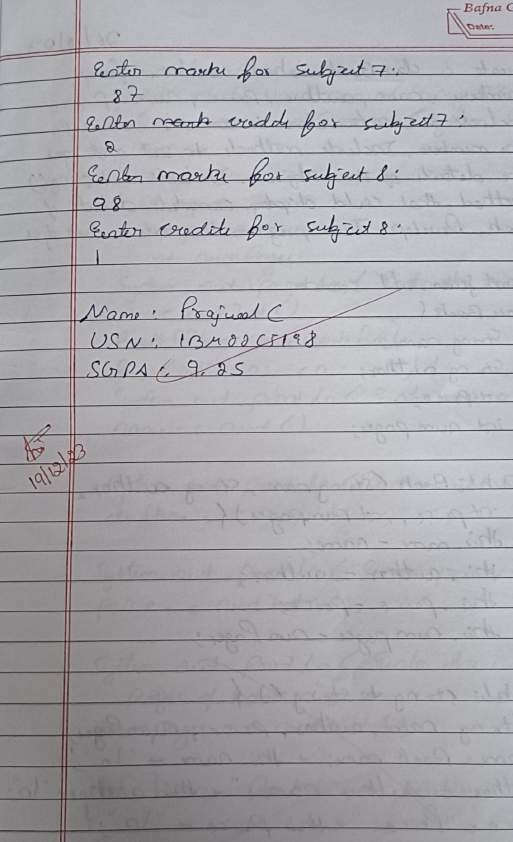 Bafna
Date:
Enter marks for subject 7:
87
Enter mark credits for subject 7:
2
Enter marks for subject 8:
98
Enter credits for subject 8:
1
Name: Prajwal C
USN:
SGPA: 9.25
19/12/23